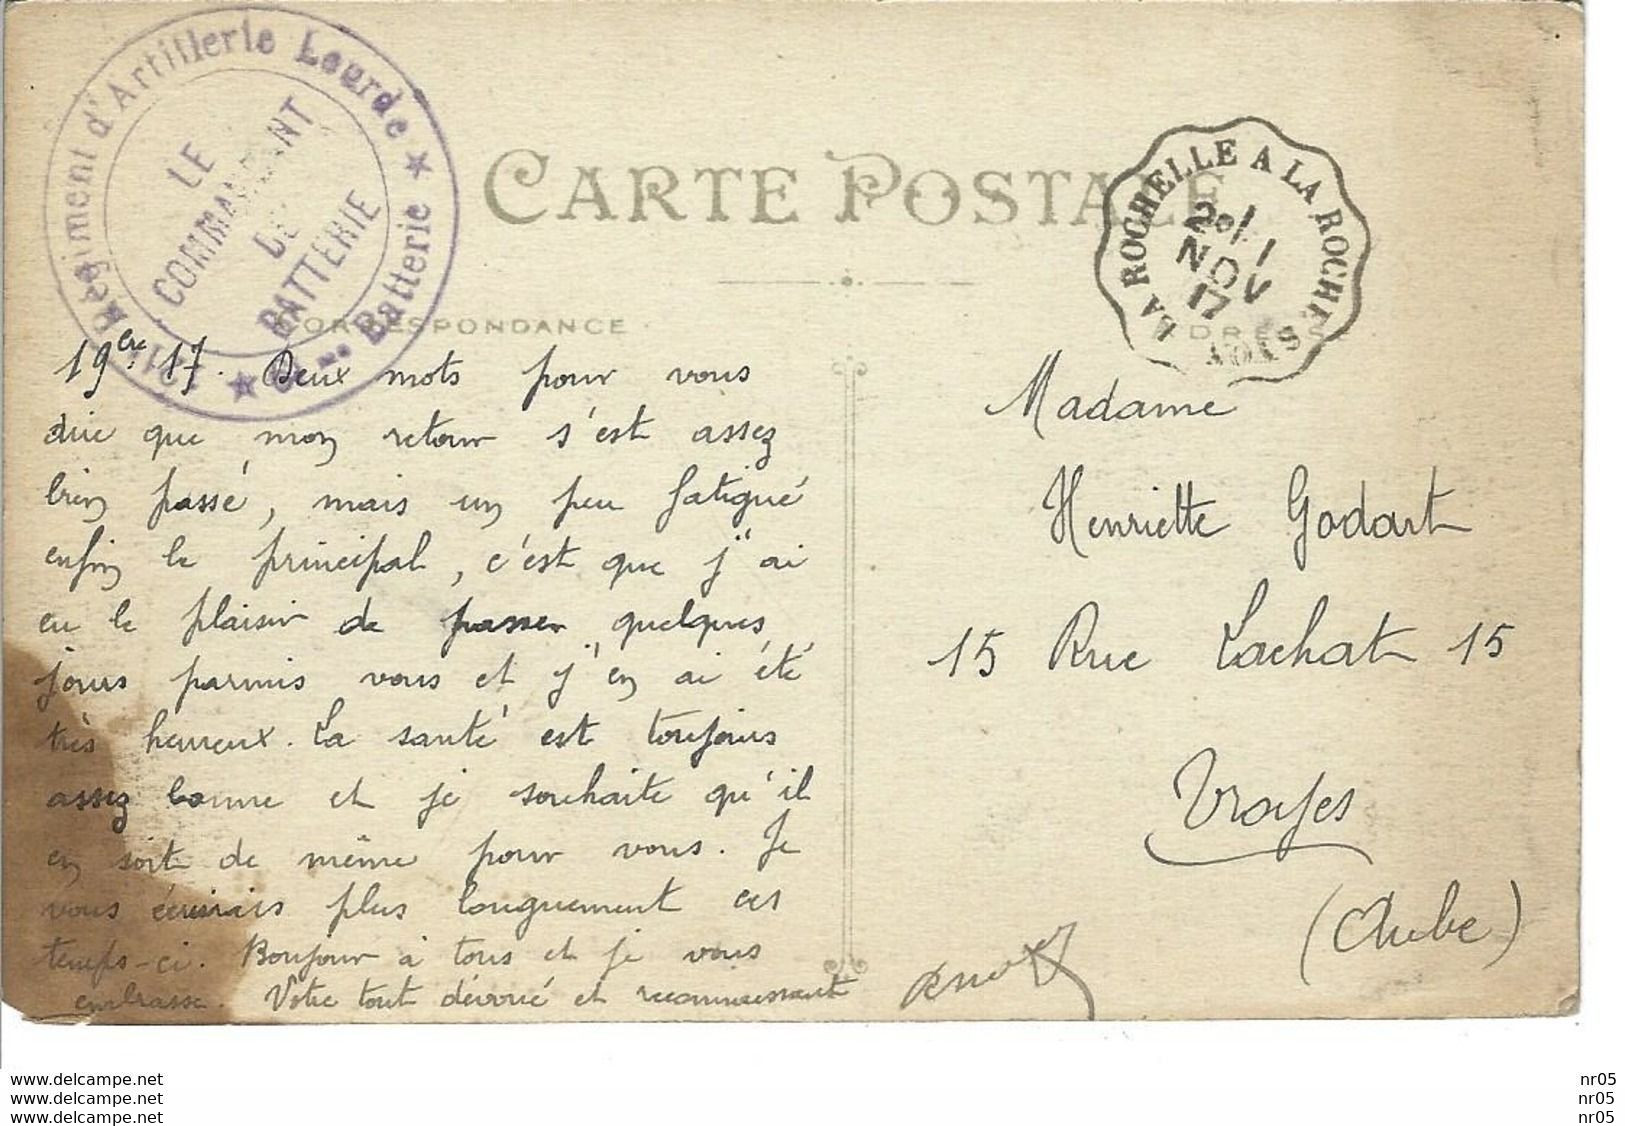 Régiment d'Artillerie Lourde
Batterie
LE
COMMANDANT
DE
BATTERIE
CARTE POSTALE
LA ROCHELLE A LA ROCHE S YON
NOV
17
CORRESPONDANCE
ADRESSE
17. Deux mots pour vous
dire que mon retour s'est assez
bien passé, mais un peu fatigué
enfin le principal, c'est que j'ai
eu le plaisir de passer quelques
jours parmis vous et j'en ai été
très heureux. La santé est toujours
assez bonne et je souhaite qu'il
en soit de même pour vous. Je
vous écrirais plus longuement ces
temps-ci. Bonjour à tous et je vous
embrasse. Votre tout dévoué et reconnaissant
Madame
Henriette Godart
15 Rue Lachat 15
Troyes
(Aube)
www.delcampe.net nr05
www.delcampe.net nr05
www.delcampe.net nr05